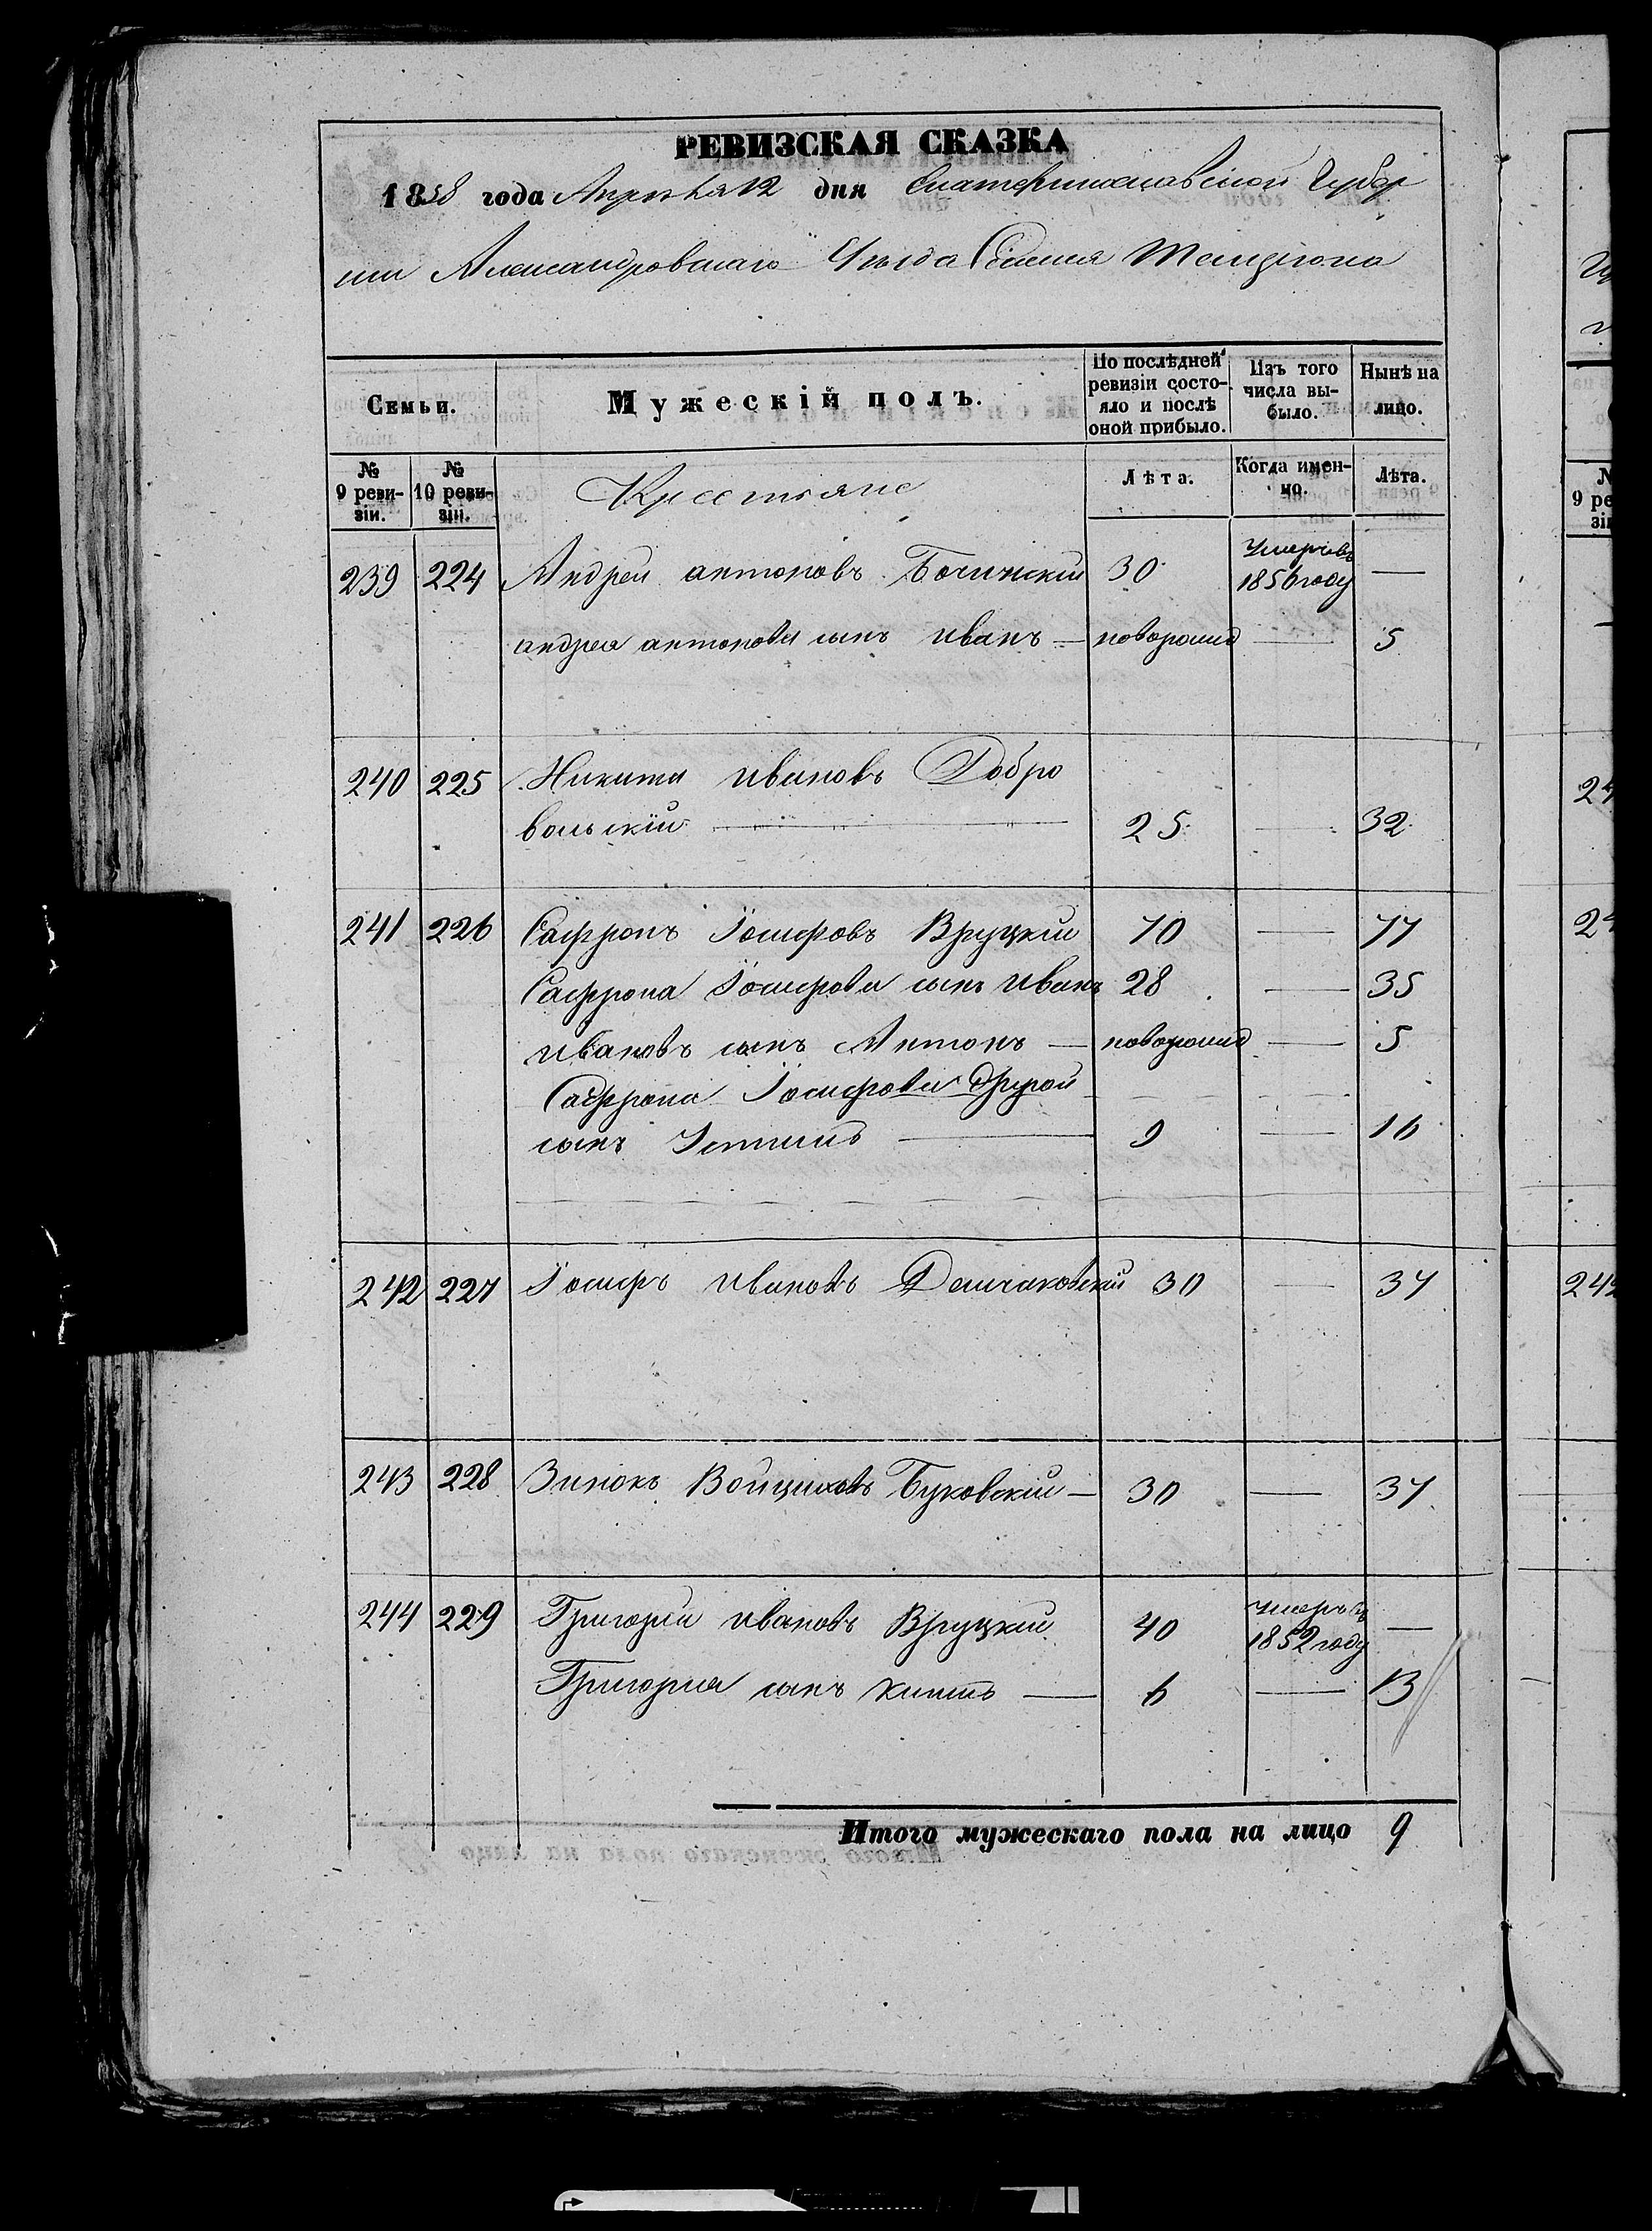 РЕВИЗСКАЯ СКАЗКА
1858 года Апреля 12 дня Екатеринославской Губер
нии Александровскаго Уѣзда Селения
Семьи. Мужескій полъ. По послѣдней ревизіи состояло и послѣ оной прибыло. Изъ того числа выбыло. Нынѣ на лицо.
№ 9 ревизіи. № 10 ревизіи. Крестьяне Лѣта. Когда именно. Лѣта.
239 224 Андрей антоновъ 30 Умеръ въ 1856 году —
андрея антонова сынъ иванъ — новорожд — 5
240 225 Никита ивановъ Добро
вольский — 25 — 32
241 226 Сафронъ Іосифовъ Вруцкий 70 — 77
Сафрона Іосифова сынъ иванъ 28 — 35
ивановъ сынъ Антонъ — новорожд — 5
Сафрона Іосифова другой
сынъ Устинъ — 9 — 16
242 227 Іосифъ ивановъ 30 — 37
243 228 Буковский — 30 — 37
244 229 Григорий ивановъ Вруцкий 40 умеръ въ 1852 году —
Григория сынъ — 6 — 13
Итого мужескаго пола на лицо 9